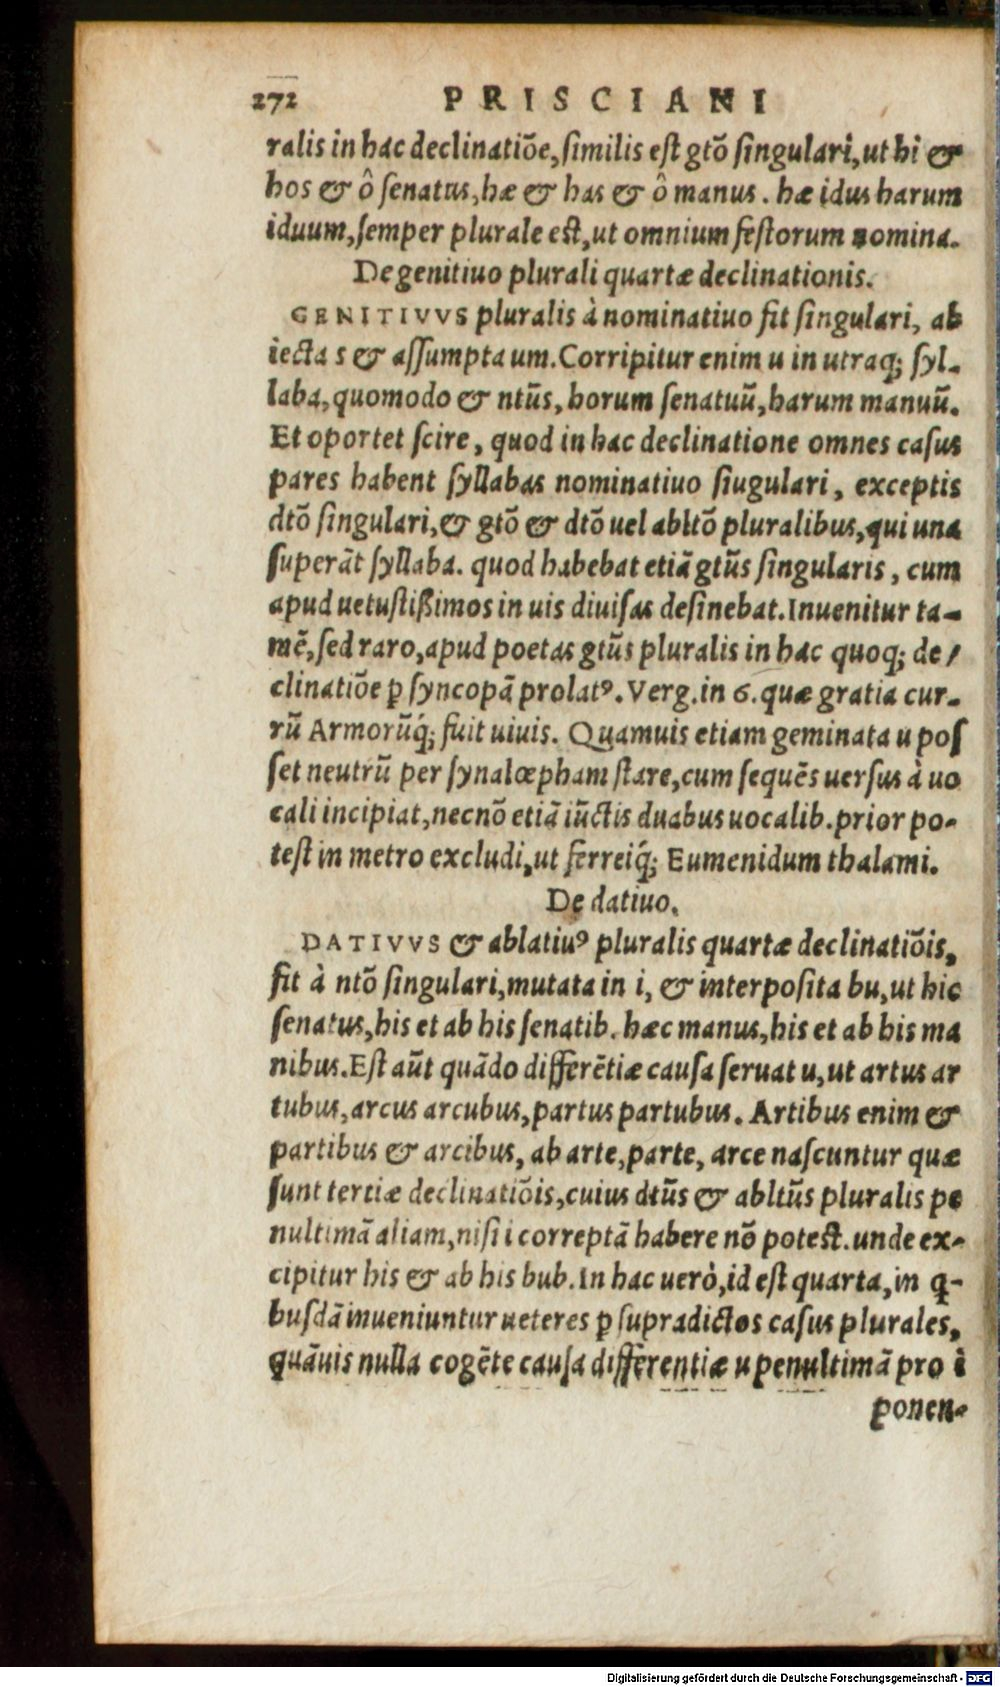 272 PRISCIANI
ralis in hac declinatiõe, similis est gtõ singulari, ut hi &
hos & ô senatus, hæ & has & ô manus. hæ idus harum
iduum, semper plurale est, ut omnium festorum nomina.
De genitiuo plurali quartæ declinationis.
GENITIVVS pluralis à nominatiuo fit singulari, ab
iecta s & assumpta um. Corripitur enim u in utraq; syl-
laba, quomodo & ntũs, horum senatuũ, harum manuũ.
Et oportet scire, quod in hac declinatione omnes casus
pares habent syllabas nominatiuo siugulari, exceptis
dtõ singulari, & gtõ & dtõ uel abltõ pluralibus, qui una
superãt syllaba. quod habebat etiã gtũs singularis, cum
apud uetustißimos in uis diuisas desinebat. Inuenitur ta-
mẽ, sed raro, apud poetas gtũs pluralis in hac quoq; de/
clinatiõe ꝑ syncopã prolatꝰ. Verg. in 6. quæ gratia cur-
rũ Armorũq́; fuit uiuis. Quamuis etiam geminata u pos
set neutrũ per synalœpham stare, cum sequẽs uersus à uo
cali incipiat, necnõ etiã iũctis duabus uocalib. prior po-
test in metro excludi, ut ferreiq́; Eumenidum thalami.
De datiuo.
DATIVVS & ablatiuꝰ pluralis quartæ declinatiõis,
fit à ntõ singulari, mutata in i, & interposita bu, ut hic
senatus, his et ab his senatib. hæc manus, his et ab his ma
nibus. Est aũt quãdo differẽtiæ causa seruat u, ut artus ar
tubus, arcus arcubus, partus partubus. Artibus enim &
partibus & arcibus, ab arte, parte, arce nascuntur quæ
sunt tertiæ declinatiõis, cuius dtũs & abltũs pluralis pe
nultimã aliam, nisi i correptã habere nõ potest. unde ex-
cipitur his & ab his bub. In hac uerò, id est quarta, in ꝗ-
busdã inueniuntur ueteres ꝑ supradictos casus plurales,
quãuis nulla cogẽte causa differentiæ u penultimã pro i
ponen-
Digitalisierung gefördert durch die Deutsche Forschungsgemeinschaft - DFG